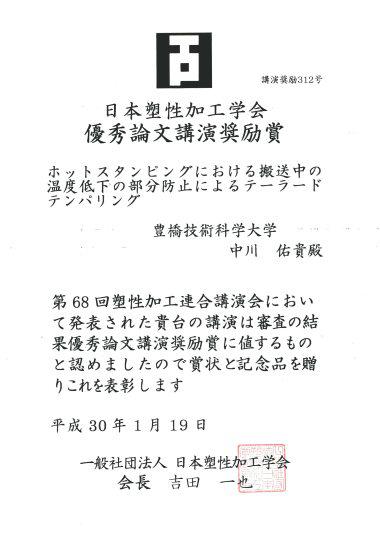 講演奨励312号
日本塑性加工学会
優秀論文講演奨励賞
ホットスタンピングにおける搬送中の
温度低下の部分防止によるテーラード
テンパリング
豊橋技術科学大学
中川 佑貴殿
第68回塑性加工連合講演会におい
て発表された貴台の講演は審査の結
果優秀論文講演奨励賞に値するもの
と認めましたので賞状と記念品を贈
りこれを表彰します
平成30年1月19日
一般社団法人 日本塑性加工学会
会長 吉田 一也